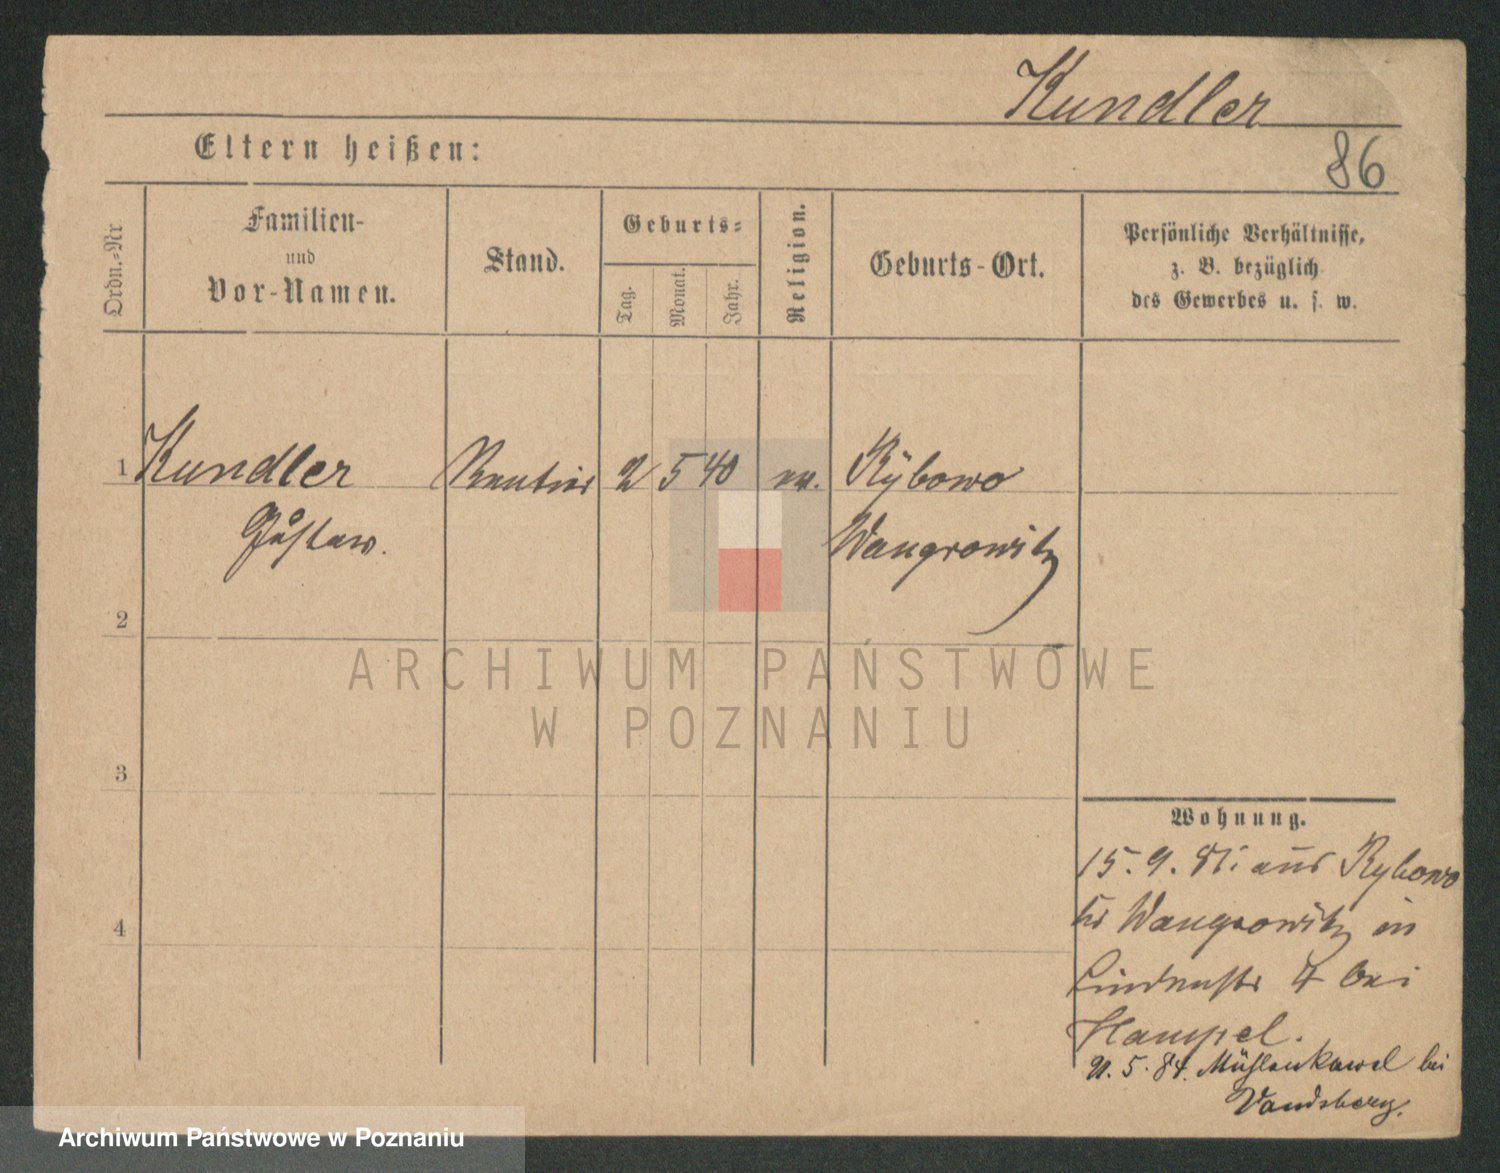 Kundler
Eltern heißen:
86
Ordn.-Nr
Familien-
und
Vor-Namen.
Stand.
Geburts-
Tag.
Monat.
Jahr.
Religion.
Geburts-Ort.
Persönliche Verhältnisse,
z. B. bezüglich
des Gewerbes u. s. w.
1 Kundler Rentier 2 5 40 ev. Rybowo
Gustaw. Wangrowitz
2
ARCHIWUM PAŃSTWOWE
W POZNANIU
3
Wohnung.
15. 9. 81. aus Rybowo
Kr Wangrowitz in
Lindenstr 4 bei
4
Hampel.
5. 84. bei
Vandsburg.
Archiwum Państwowe w Poznaniu